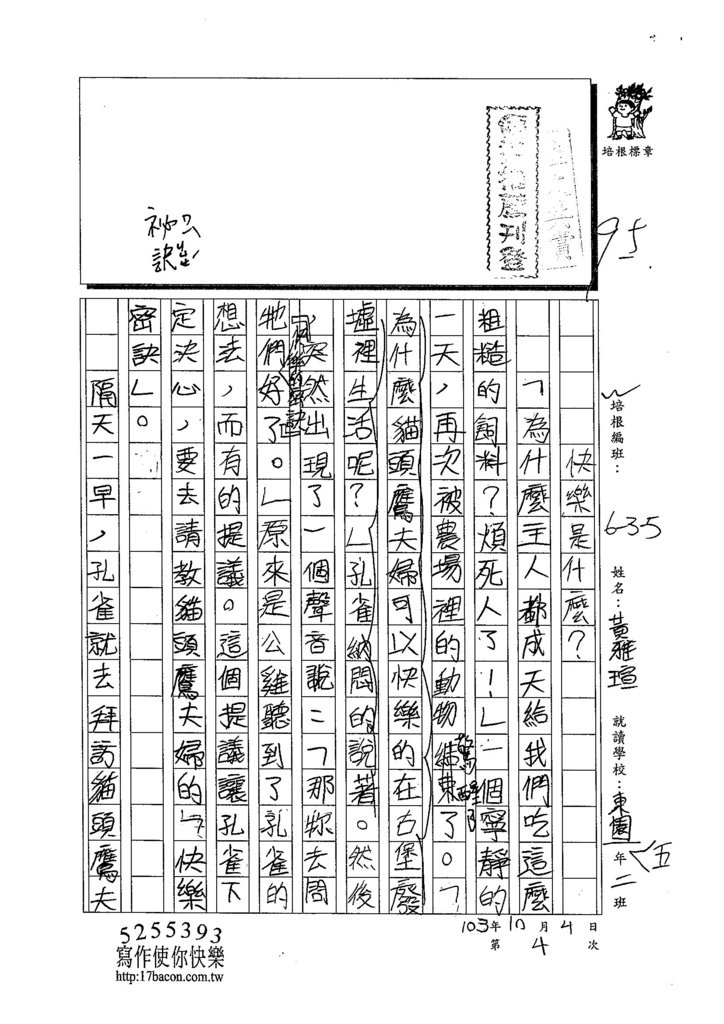 培根標章
95
祕訣
培根編班：635
姓名：黃雅瑄
就讀學校：東園
五年二班
103年10月4日
第4次
快樂是什麼？
「為什麼主人都成天給我們吃這麼
粗糙的飼料？煩死人了！」一個寧靜的
一天，再次被農場裡的動物結束了。「
驚醒了
為什麼貓頭鷹夫婦可以快樂的在古堡廢
墟裡生活呢？」孔雀納悶的說著。然後
，突然出現了一個聲音說：「那妳去問
牠們好了。」原來是公雞聽到了孔雀的
想法，而有的提議。這個提議讓孔雀下
定決心，要去請教貓頭鷹夫婦的「快樂
密訣」。
隔天一早，孔雀就去拜訪貓頭鷹夫
5255393
寫作使你快樂
http:17bacon.com.tw